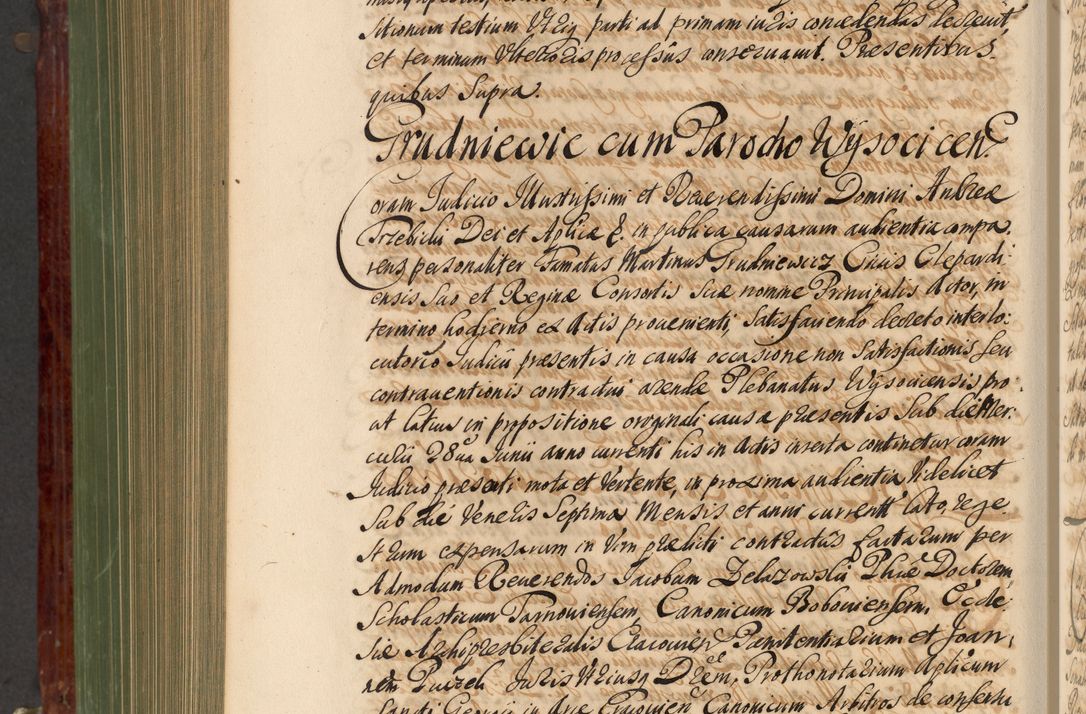 sitionum testium Utriq parti ad primam iuris concedendas decreuit,
et terminum Ulterioris processus conseruauit. Præsentibus
quibus Supra.
Grudniewic cum Parocho Wysocicen.
Coram Iudicio Illustrissimi et Reuerendissimi Domini Andreæ
Trzebicki Dei et Aplicæ &. in publica causarum audientia compa,
rens personaliter Famatus Martinus Grudniewicz Ciuis Clepardi,
ensis Suo et Reginæ Consortis Suæ nomine Principalis Actor, in
termino hodierno ex Actis prouenienti, Satisfaciendo decreto interlo:
cutorio Iudicii præsentis in causa occasione non Satisfactionis seu
contrauentionis contractui arendæ Plebanatus Wysocicensis pro
ut latius in propositione originali causæ præsentis Sub die Mer,
curii 28ua Iunii anno currenti his in Actis inserta continetur coram
Iudicio præsenti mota et Vertente, in proxima audientia Videlicet
Sub die Veneris Septima Mensis et anni currentt lato, rege,
strum expensarum in Vim prædicti contractus factarum per
Admodum Reuerendos Jacobum Zelazowski Phiæ Doctorem
Scholasticum Tarnouiensem, Canonicum Bobouiensem, Eccle,
siæ Archipresbiteralis Cracouien Pænitentiarium et Joan,
nem Puizek Juris Utriusq Drem, Prothonotarium Aplicum
Sancti Georgii in Arce Cracouien Canonicum Arbitros de consensu